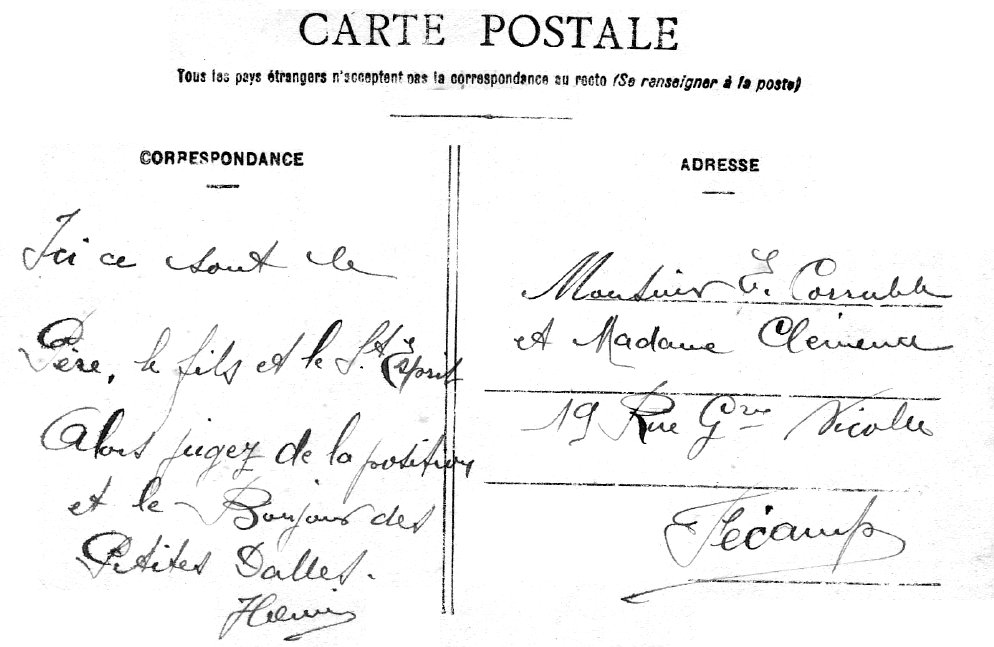 CARTE POSTALE
Tous les pays étrangers n'acceptent pas la correspondance au recto (Se renseigner à la poste)
CORRESPONDANCE
Ici ce sont le
Père, le fils et le St Esprit
Alors jugez de la position
et le Bonjour des
Petites Dalles.
Henri
ADRESSE
Monsieur E. Corruble
et Madame Clémence
19 Rue Gve Nicolle
Fécamp